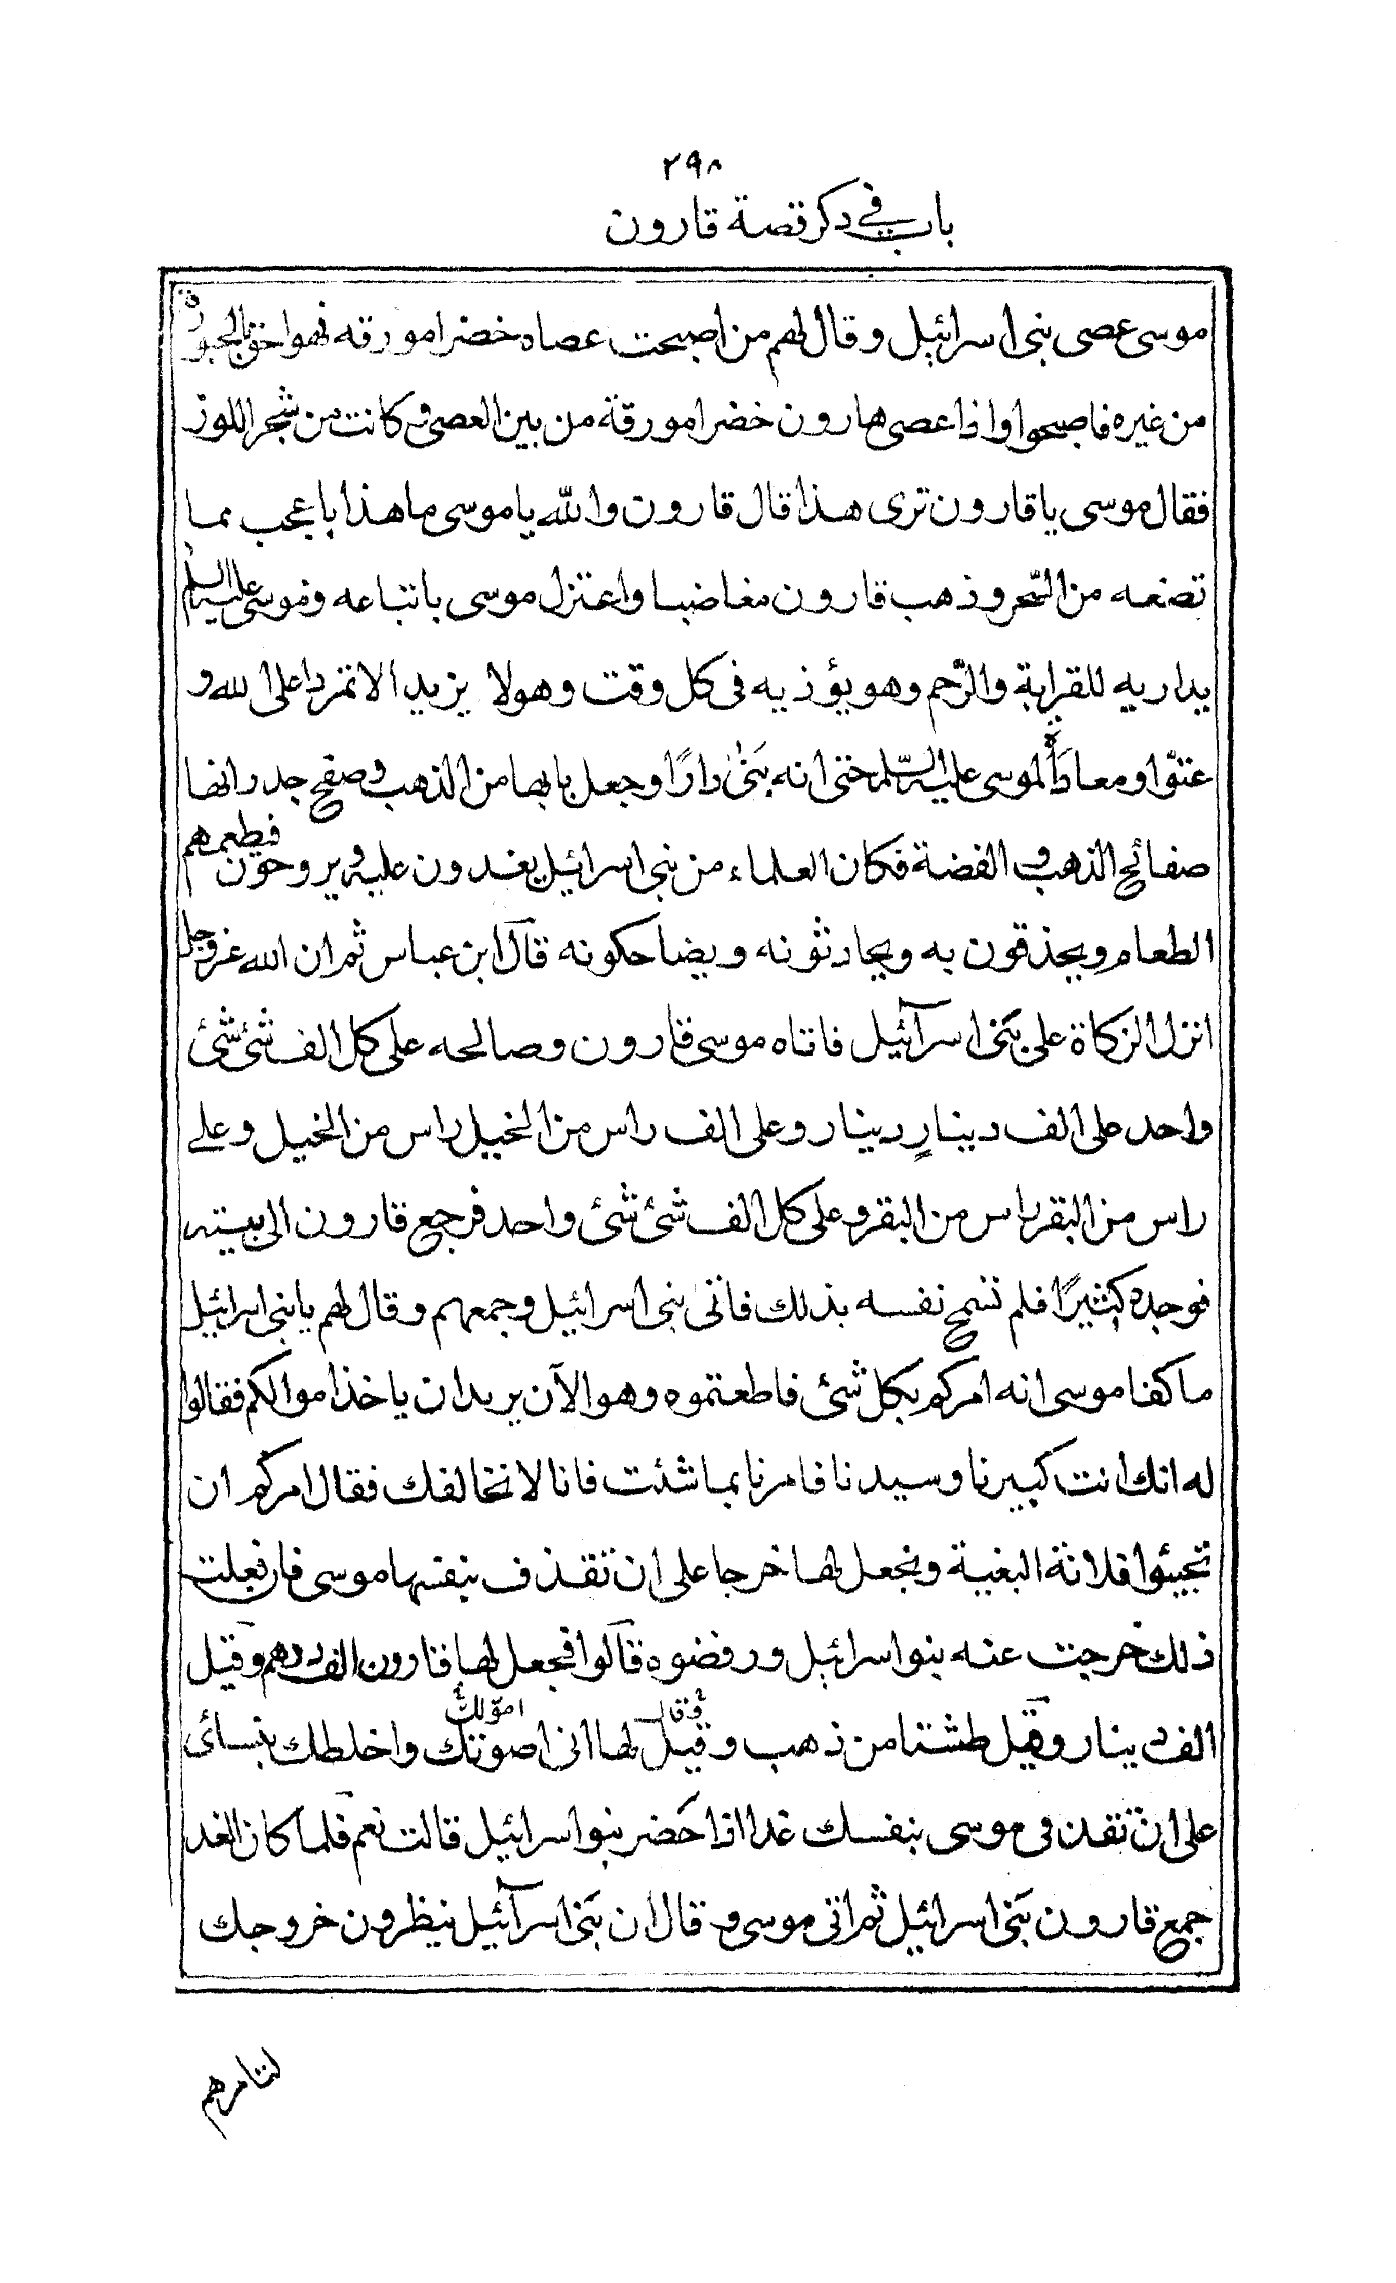 ٢٩٨
باب في ذكر قصة قارون
موسى عصى بنى اسرائيل وقال لهم من اصبحت عصاه خضرا مورقه فهو احق بالحبورة
من غيره فاصبحوا واذا عصى هارون خضرا مورقة من بين العصى وكانت من شجر اللوز
فقال موسى يا قارون ترى هذا قال قارون والله يا موسى ما هذا باعجب مما
تصنعه من السّحر وذهب قارون مغاضبا واعتزل موسى باتباعه وموسى عليه السلم
يداريه للقرابة والرّحم وهو يؤذيه فى كل وقت وهو لا يزيد الا تمردا على الله و
عتوّا ومعاداة لموسى عليه السّلم حتى انه بَنٰى دارًا وجعل بابها من الذهب وصفح جدرانها
صفائح الذهب و الفضة فكان العلماء من بنى اسرائيل يغدون عليه ويروحون فيطعمهم
الطعام ويحذقون به ويحادثونه ويضاحكونه قال ابن عباس ثم ان الله عز وجل
انزل الزكاة على بَنى اسرآئيل فاتاه موسى قارون وصالحه على كل الف شئ شئ
واحد على الف دينارٍ دينار وعلى الف راس من الخيل راس من الخيل وعلى
راس من البقر راس من البقر وعلى كل الف شئ شئ واحد فرجع قارون الى بيته
فوجده كثيرًا فلم تسمح نفسه بذلك فاتى بنى اسرائيل وجمعهم وقال لهم يا بنى اسرائيل
ما كفا موسى انه امركم بكل شئ فاطعتموه وهو الآن يريد ان ياخذ اموالكم فقالوا
له انك انت كبيرنا وسيدنا فامرنا بما شئت فانا لا نخالفك فقال امركم ان
تجيئوا فلانة البغية ونجعل لها خرجا على ان تقذف بنفسها موسى فان فعلت
ذلك خرجت عنه بنو اسرائيل ورفضوه قالوا فجعل لها قارون الف درهم وقيل
الف دينار وقيل طشتا من ذهب وقيل وقال لها انى اصونك امولك واخلطك بنسائى
على ان تقذفى موسى بنفسك غدا اذا حَضر بنو اسرائيل قالت نعم فلما كان الغد
جمع قارون بَنى اسرائيل ثم اتى موسى و قال ان بَنى اسرآئيل ينظرون خروجك
لتامرهم